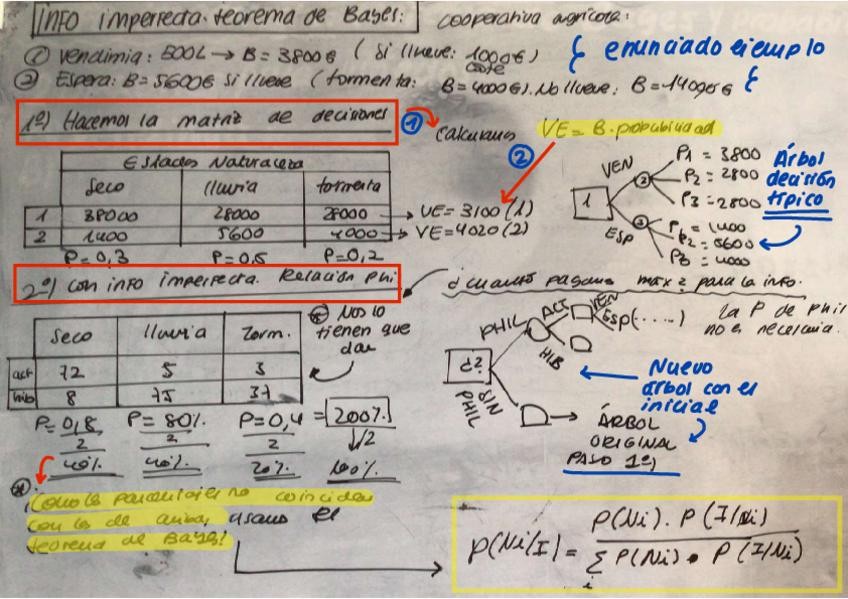 INFO imperfecta. teorema de Bayes: cooperativa agrícola:
① Vendimia: 500L → B = 3800€ ( si llueve: 1000€)
coste
② Espera: B = 5600€ si llueve ( tormenta: B = 4000€). No llueve:
{ enunciado ejemplo
1º) Hacemos la matriz de decisiones
① Calculamos VE = B. probabilidad
②
Estados Naturaleza
Seco lluvia tormenta
1 38000 28000 28000 → VE = 3100 (1)
2 1400 5600 4000 → VE = 4020 (2)
P = 0,3 P = 0,5 P = 0,2
1 VEN ESP
P1 = 3800
P2 = 2800
P3 = 2800
P2 = 5600
P3 = 4000
Árbol
decisión
típico
2º) con info imperfecta. Relación phi
¿cuanto pagamos max? para la info.
Seco lluvia Torm.
act 72 5 3
hib 8 75 37
* Nos lo
tienen que
dar
P = 0,8 P = 80% P = 0,4 = 200%
2 2 2 /2
40% 40% 20% 100%
¿? PHIL ACT VEN ESP(.....)
HIB
SIN
PHIL
la P de phil
no es necesaria.
Nuevo
árbol con el
inicial
ÁRBOL
ORIGINAL
PASO 1º)
* ¡Como los porcentajes no coinciden
con los de arriba, usamos el
teorema de Bayes!
P(Ni/I) = P(Ni) . P(I/Ni)
∑ P(Ni) • P(I/Ni)
i